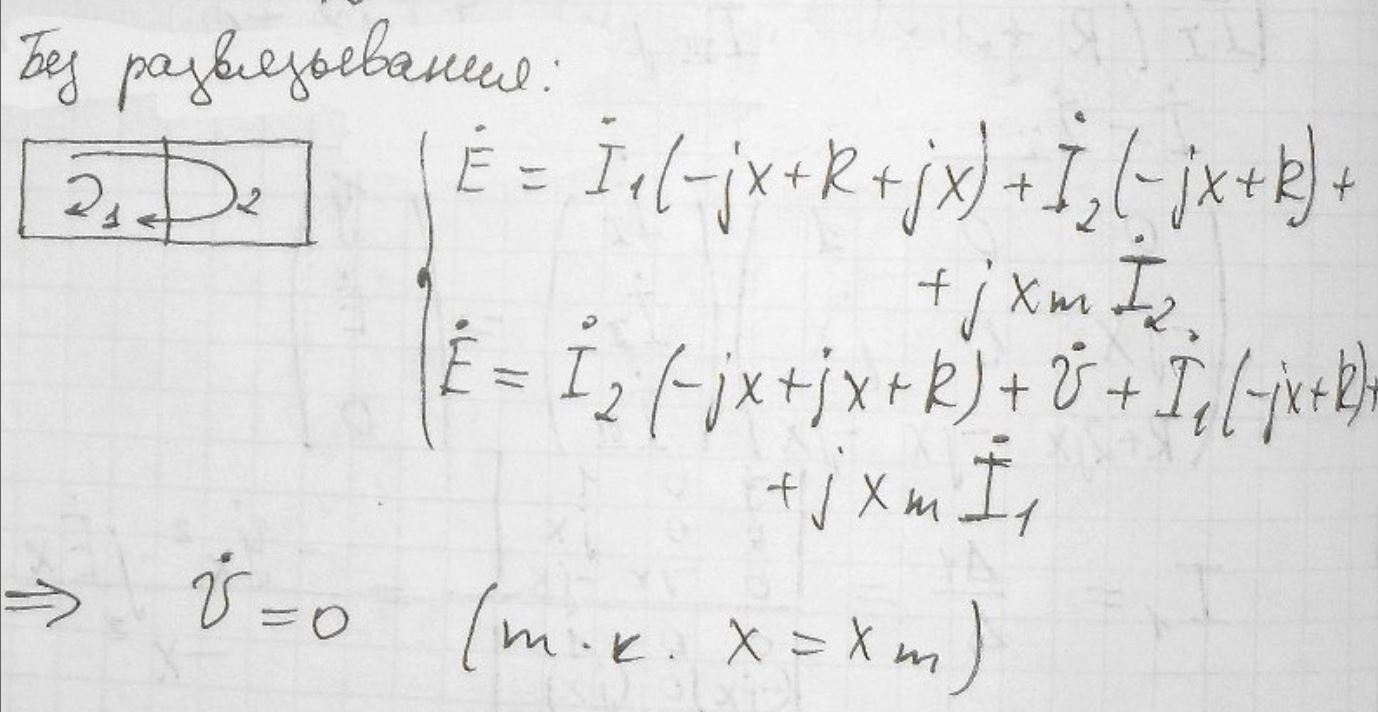 Без развязывания:
1 2
Ė = İ₁(-jx+R+jx)+İ₂(-jx+R)+
+jxₘİ₂
Ė = İ₂(-jx+jx+R)+U̇+İ₁(-jx+R)+
+jxₘİ₁
⇒ U̇=0 (т.к. x=xₘ)